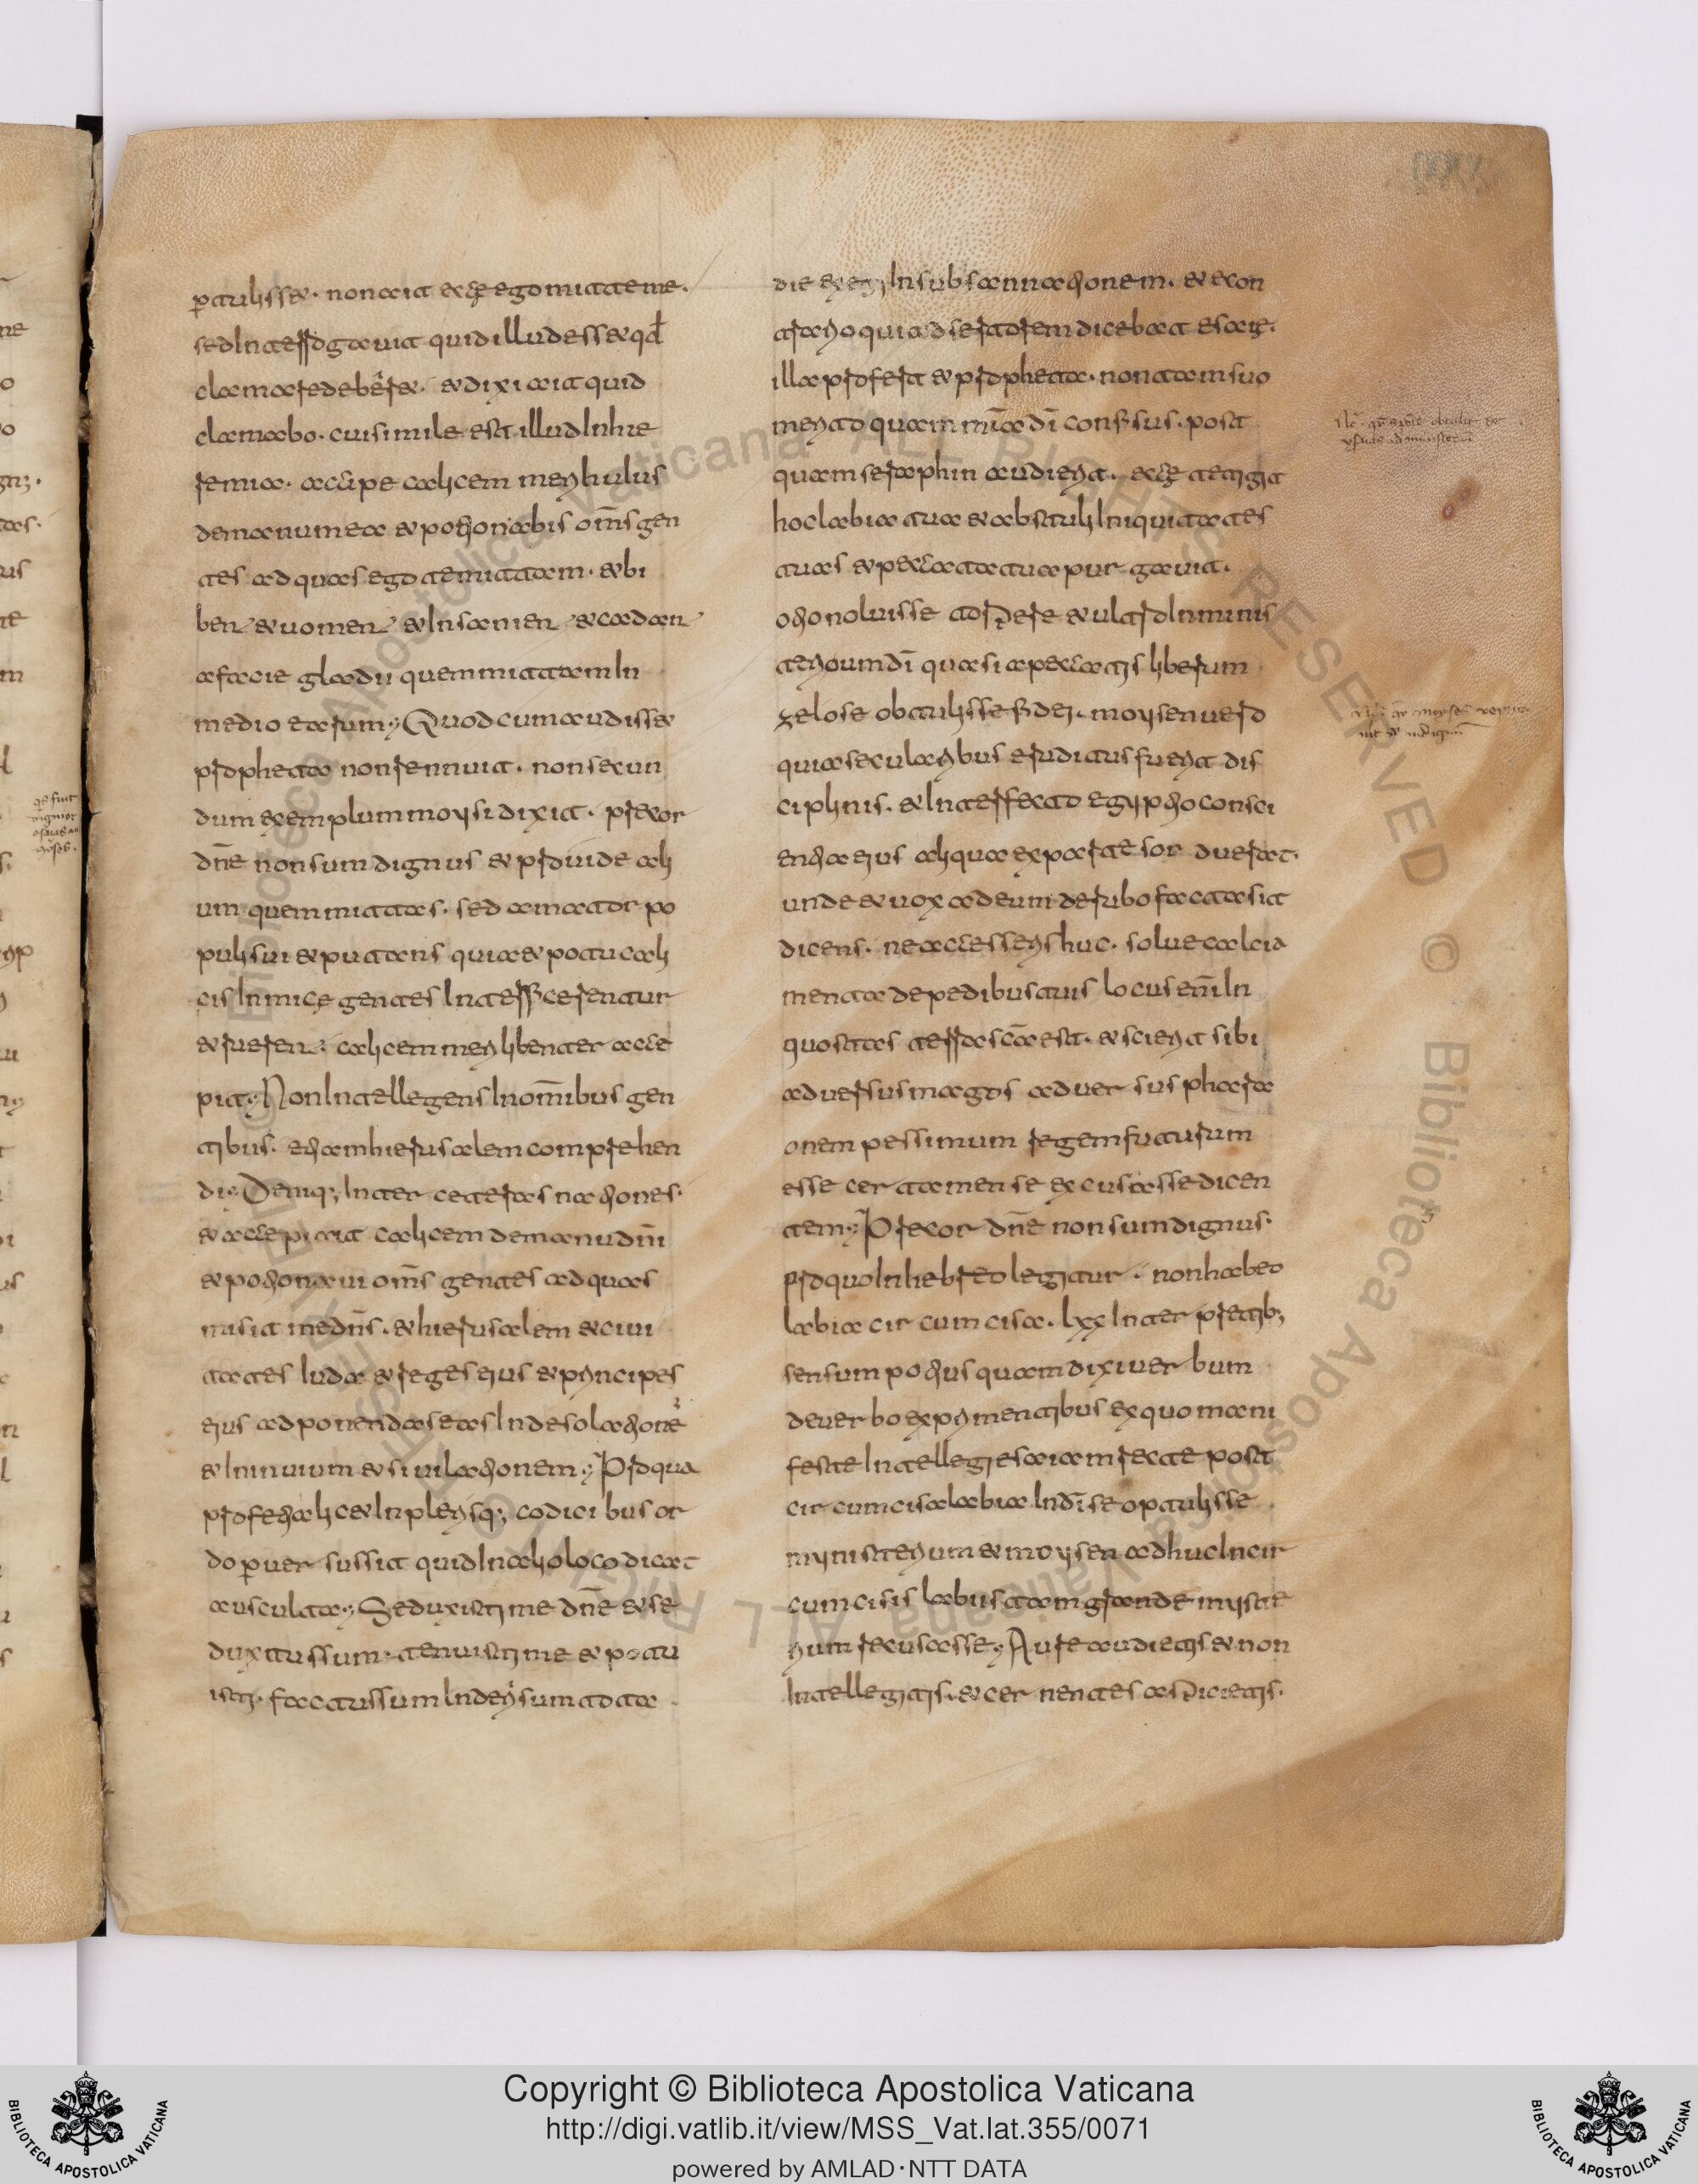 ptulisset. non ait ecce ego mitte me.
sed Interrogavit quid illud esset qđ
clamare deberet. et dixi ait quid
clamabo. cui simile est illud In hie
remia. accipe calicem meri huius
de manu mea et potionabis om̄s gen
tes ad quas ego te mittam. et bi
bent et voment et Insanient et cadent
a facie gladii quem mittam In
medio earum; Quod cum audisset
propheta non rennuit. non secun
dum exemplum moysi dixit. precor
dn̄e non sum dignus et provide ali
um quem mittas. sed amator po
puli sui et putans quia et potu cali
cis Inimice gentes Interficerentur
et ruerent calicem meri libenter acce
pit; Non Intellegens In om̄ibus gen
tibus. etiam hierusalem comprehen
di; Deniq; Inter ceteras nationes.
et accepi ait calicem de manu dn̄i
et potionavi om̄s gentes ad quas
misit me dn̄s. et hierusalem et civi
tates Iuda et reges eius et principes
eius ad ponendas eas In desolationē
et Innuium et sivilationem; Pro qua
profetia licet In plerisq; codicibus or
do pversus sit quid In alio loco dicat
ausculta; Seduxisti me dn̄e et se
ductus sum. tenuisti me et potu
isti. factus sum In derisum tota
die et egi In subsannationem. et econ
trario quia dseratorem dicebat esaie.
illa proferat propheta. non tam suo
merito quam mīa dī confisus. post
quam serafin audierat. ecce tetigit
hoc labia tua et abstulit Iniquitates
tuas et peccata tua purgavit.
otio noluisse torpere et ultro In minis
terium dī quasi a peccatis liberum
zelose obtulisse fidei. moysen vero
quia secularibus eruditus fuerat dis
ciplinis. et Interfecto egyptio consci
entia eius aliqua ex parte sorduerat.
unde et vox ad eum de rubo facta sit
dicens. ne accesseris huc. solve calcia
menta de pedibus tuis locus en̄im In
quo stas terra sc̄a est. et scierit sibi
adversus magos adversus phara
onem pessimum regem futurum
esse certamen se excusasse dicen
tem; Precor dn̄e non sum dignus.
Pro quo In hebreo legitur. non habeo
labia circumcisa. lxx Interpretib;
sensum potius quam dixi verbum
de verbo exprimentibus ex quo mani
feste Intellegi esaiam recte post
circumcisa labia In dī se optulisse
mynisterium et moysen adhuc Incir
cumcisis labiis tam grande myste
rium recusasse; Aure audietis et non
Intellegitis. et cernentes aspicietis.
Copyright © Biblioteca Apostolica Vaticana
http://digi.vatlib.it/view/MSS_Vat.lat.355/0071
powered by AMLAD·NTT DATA
BIBLIOTECA APOSTOLICA VATICANA
BIBLIOTECA APOSTOLICA VATICANA